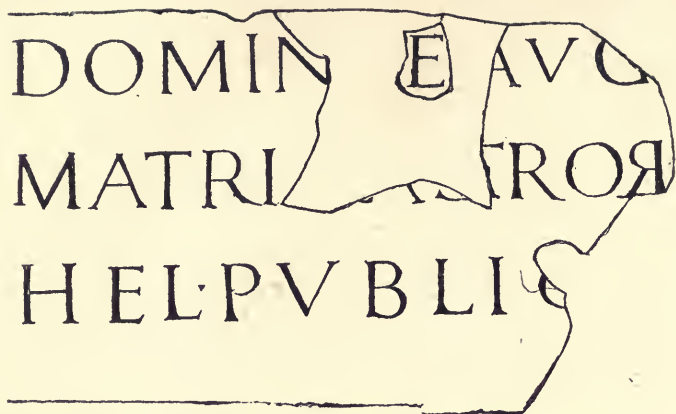 DOMIN E AVG
MATRI ASTROR
HEL·PVBLIC